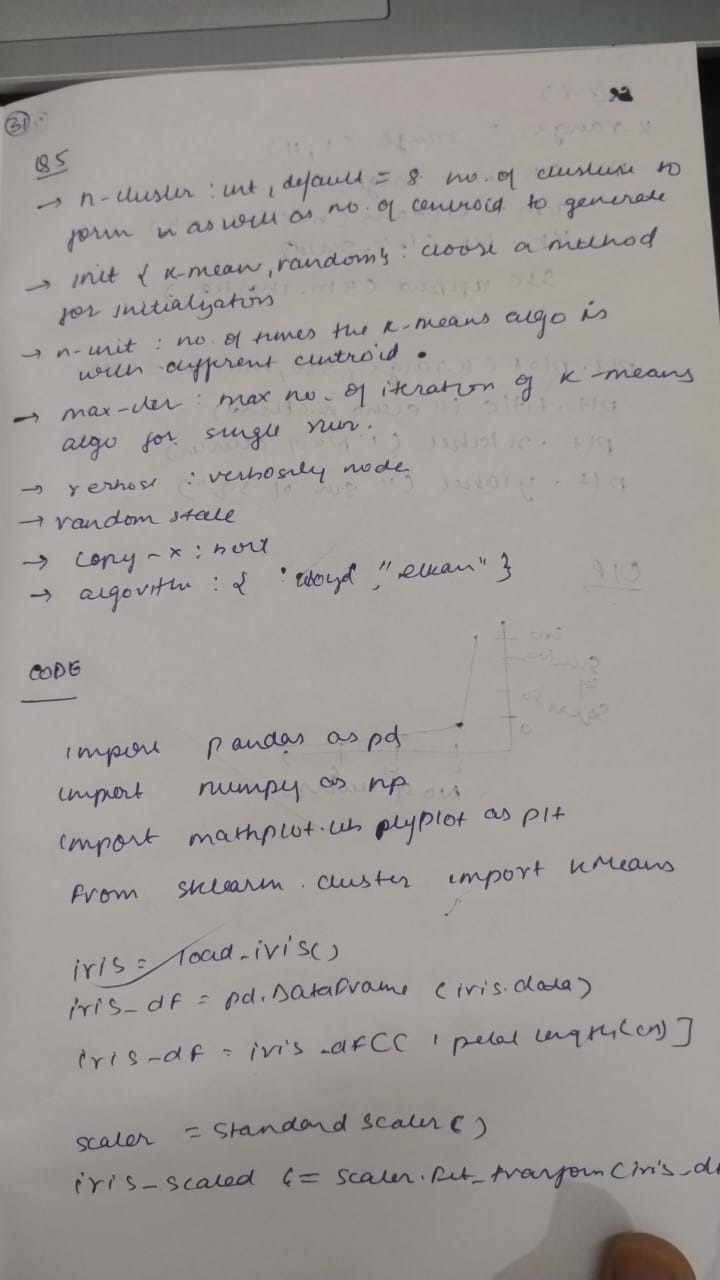 31
Q5
→ n-cluster : int, default = 8 no. of clusters to
form n as well as no. of centroid to generate
→ init { k-mean, random } : choose a method
for initialization
→ n-init : no. of times the k-means algo is
with different centroid.
→ max-iter : max no. of iteration of k-means
algo for single run.
→ verbose : verbosity mode
→ random state
→ copy-x :
→ algorithm : { "lloyd", "elkan" }
CODE
import pandas as pd
import numpy as np
import mathplot.lib plyplot as plt
from sklearn.cluster import KMeans
iris = load_iris()
iris_df = pd.DataFrame (iris.data)
iris_df = iris_df[[ ' petal length (cm) ]
scaler = Standard Scaler ()
iris_scaled = scaler.fit_transform (iris_df